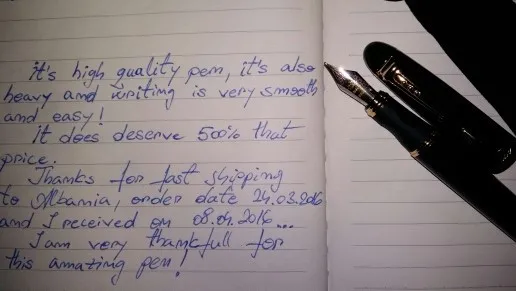 it's high quality pen, it's also
heavy and writing is very smooth
and easy!
it does deserve 500% that
price.
Thanks for fast shipping
to Albania, order date 24.03.2016
and I received on 08.04.2016...
I am very thankfull for
this amazing pen!